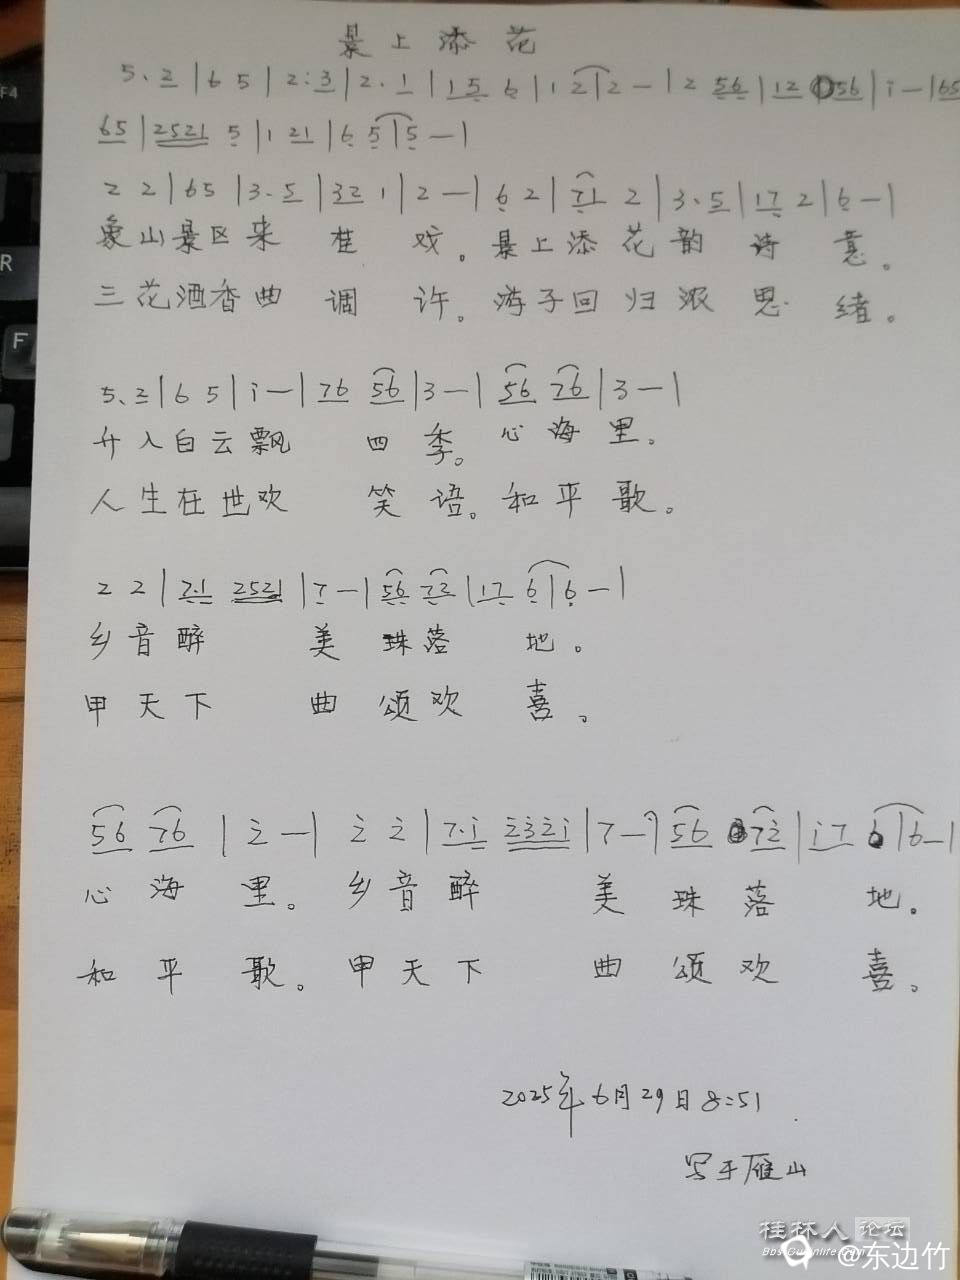 景上添花
5. 2 | 6 5 | 2: 3 | 2. 1 | 15 6 | 1 2 | 2 — | 2 56 | 12 56 | i — | 65
65 | 2521 5 | 1 21 | 6 5 | 5 — |
2 2 | 65 | 3. 5 | 32 1 | 2 — | 6 2 | 71 2 | 3. 5 | 17 2 | 6 — |
象山景区来 桂 戏。景上添花韵 诗 意。
三花酒香曲 调 许。游子回归浓 思 绪。
5. 2 | 6 5 | i — | 76 56 | 3 — | 56 76 | 3 — |
升入白云飘 四 季。心海里。
人生在世欢 笑 语。和平歌。
2 2 | 7.1 2521 | 7 — | 56 72 | 17 6 | 6 — |
乡音醉 美 珠落 地。
甲天下 曲 颂欢 喜。
56 76 | 2 — | 2 2 | 7.i 232i | 7 — | 56 72 | i7 6 | 6 — |
心海里。乡音醉 美 珠落 地。
和平歌。甲天下 曲 颂欢 喜。
2025年6月29日8:51
写于雁山
桂林人论坛
@东边竹
F4
R
F